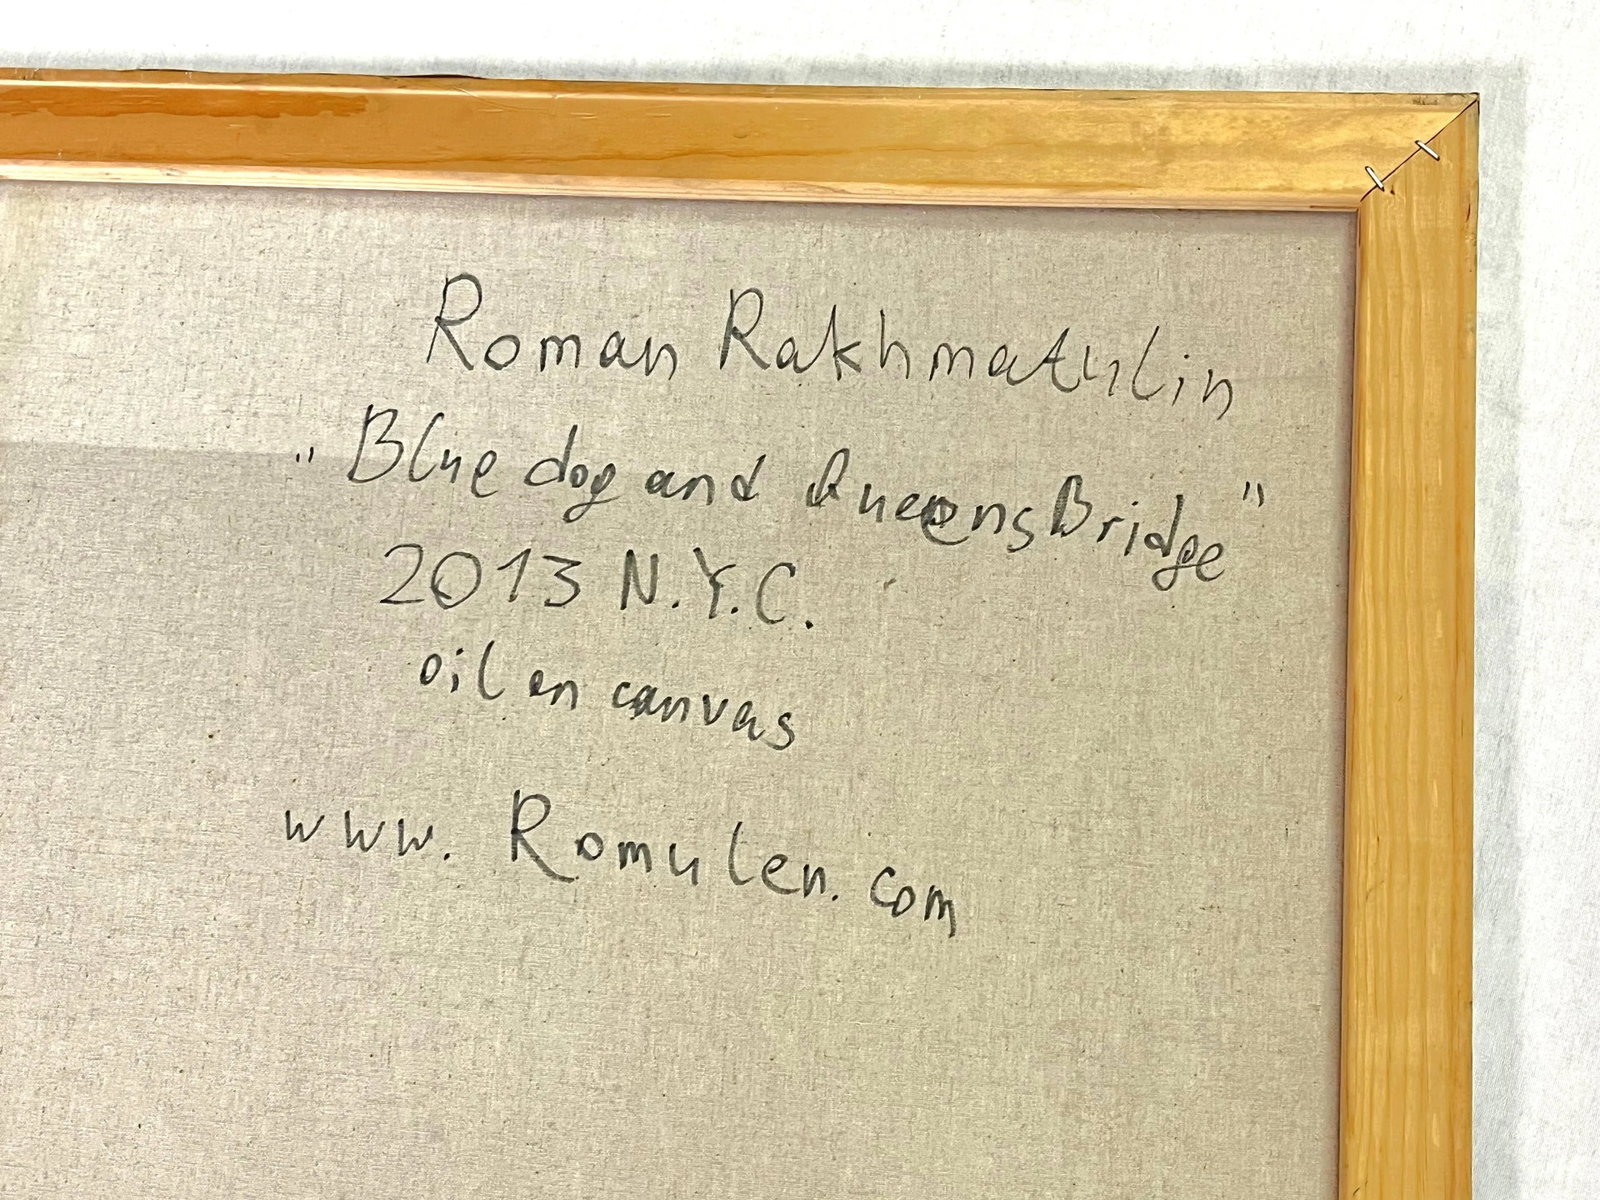 Roman Rakhmatulin
"Blue dog and Queens Bridge"
2013 N.Y.C.
oil on canvas
www. Romulen. com